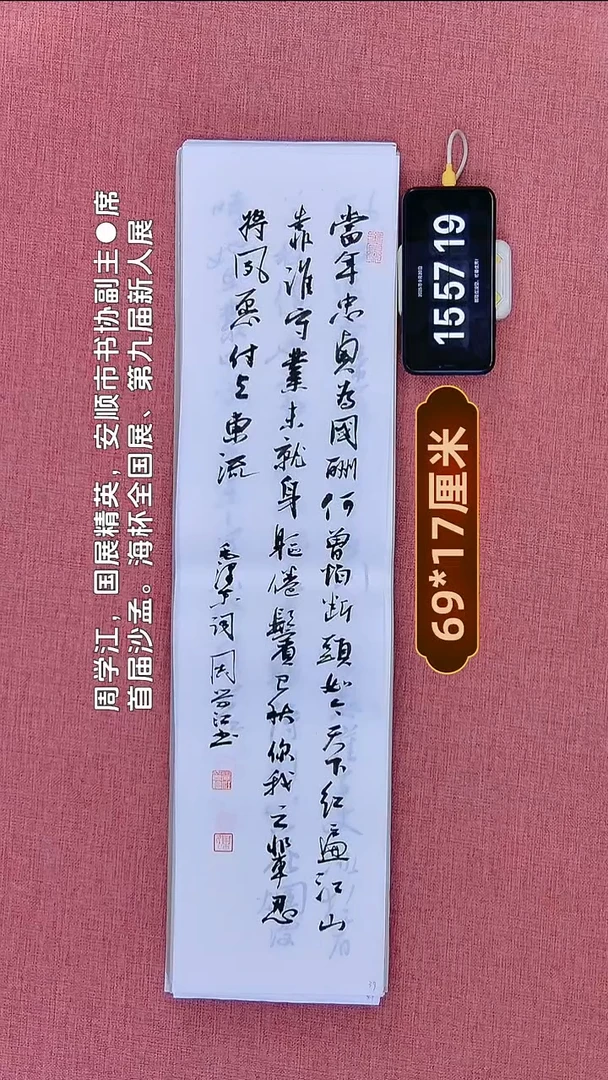 當年忠貞為國酬何曾怕断頭如今天下红遍江山
靠誰守業未就身軀倦鬢已秋你我之輩忍
将夙愿付与東流
毛澤东词 周学江书
周学江，国展精英，安顺市书协副主●席
首届沙孟。海杯全国展、第九届新人展
15 57 19
69*17厘米